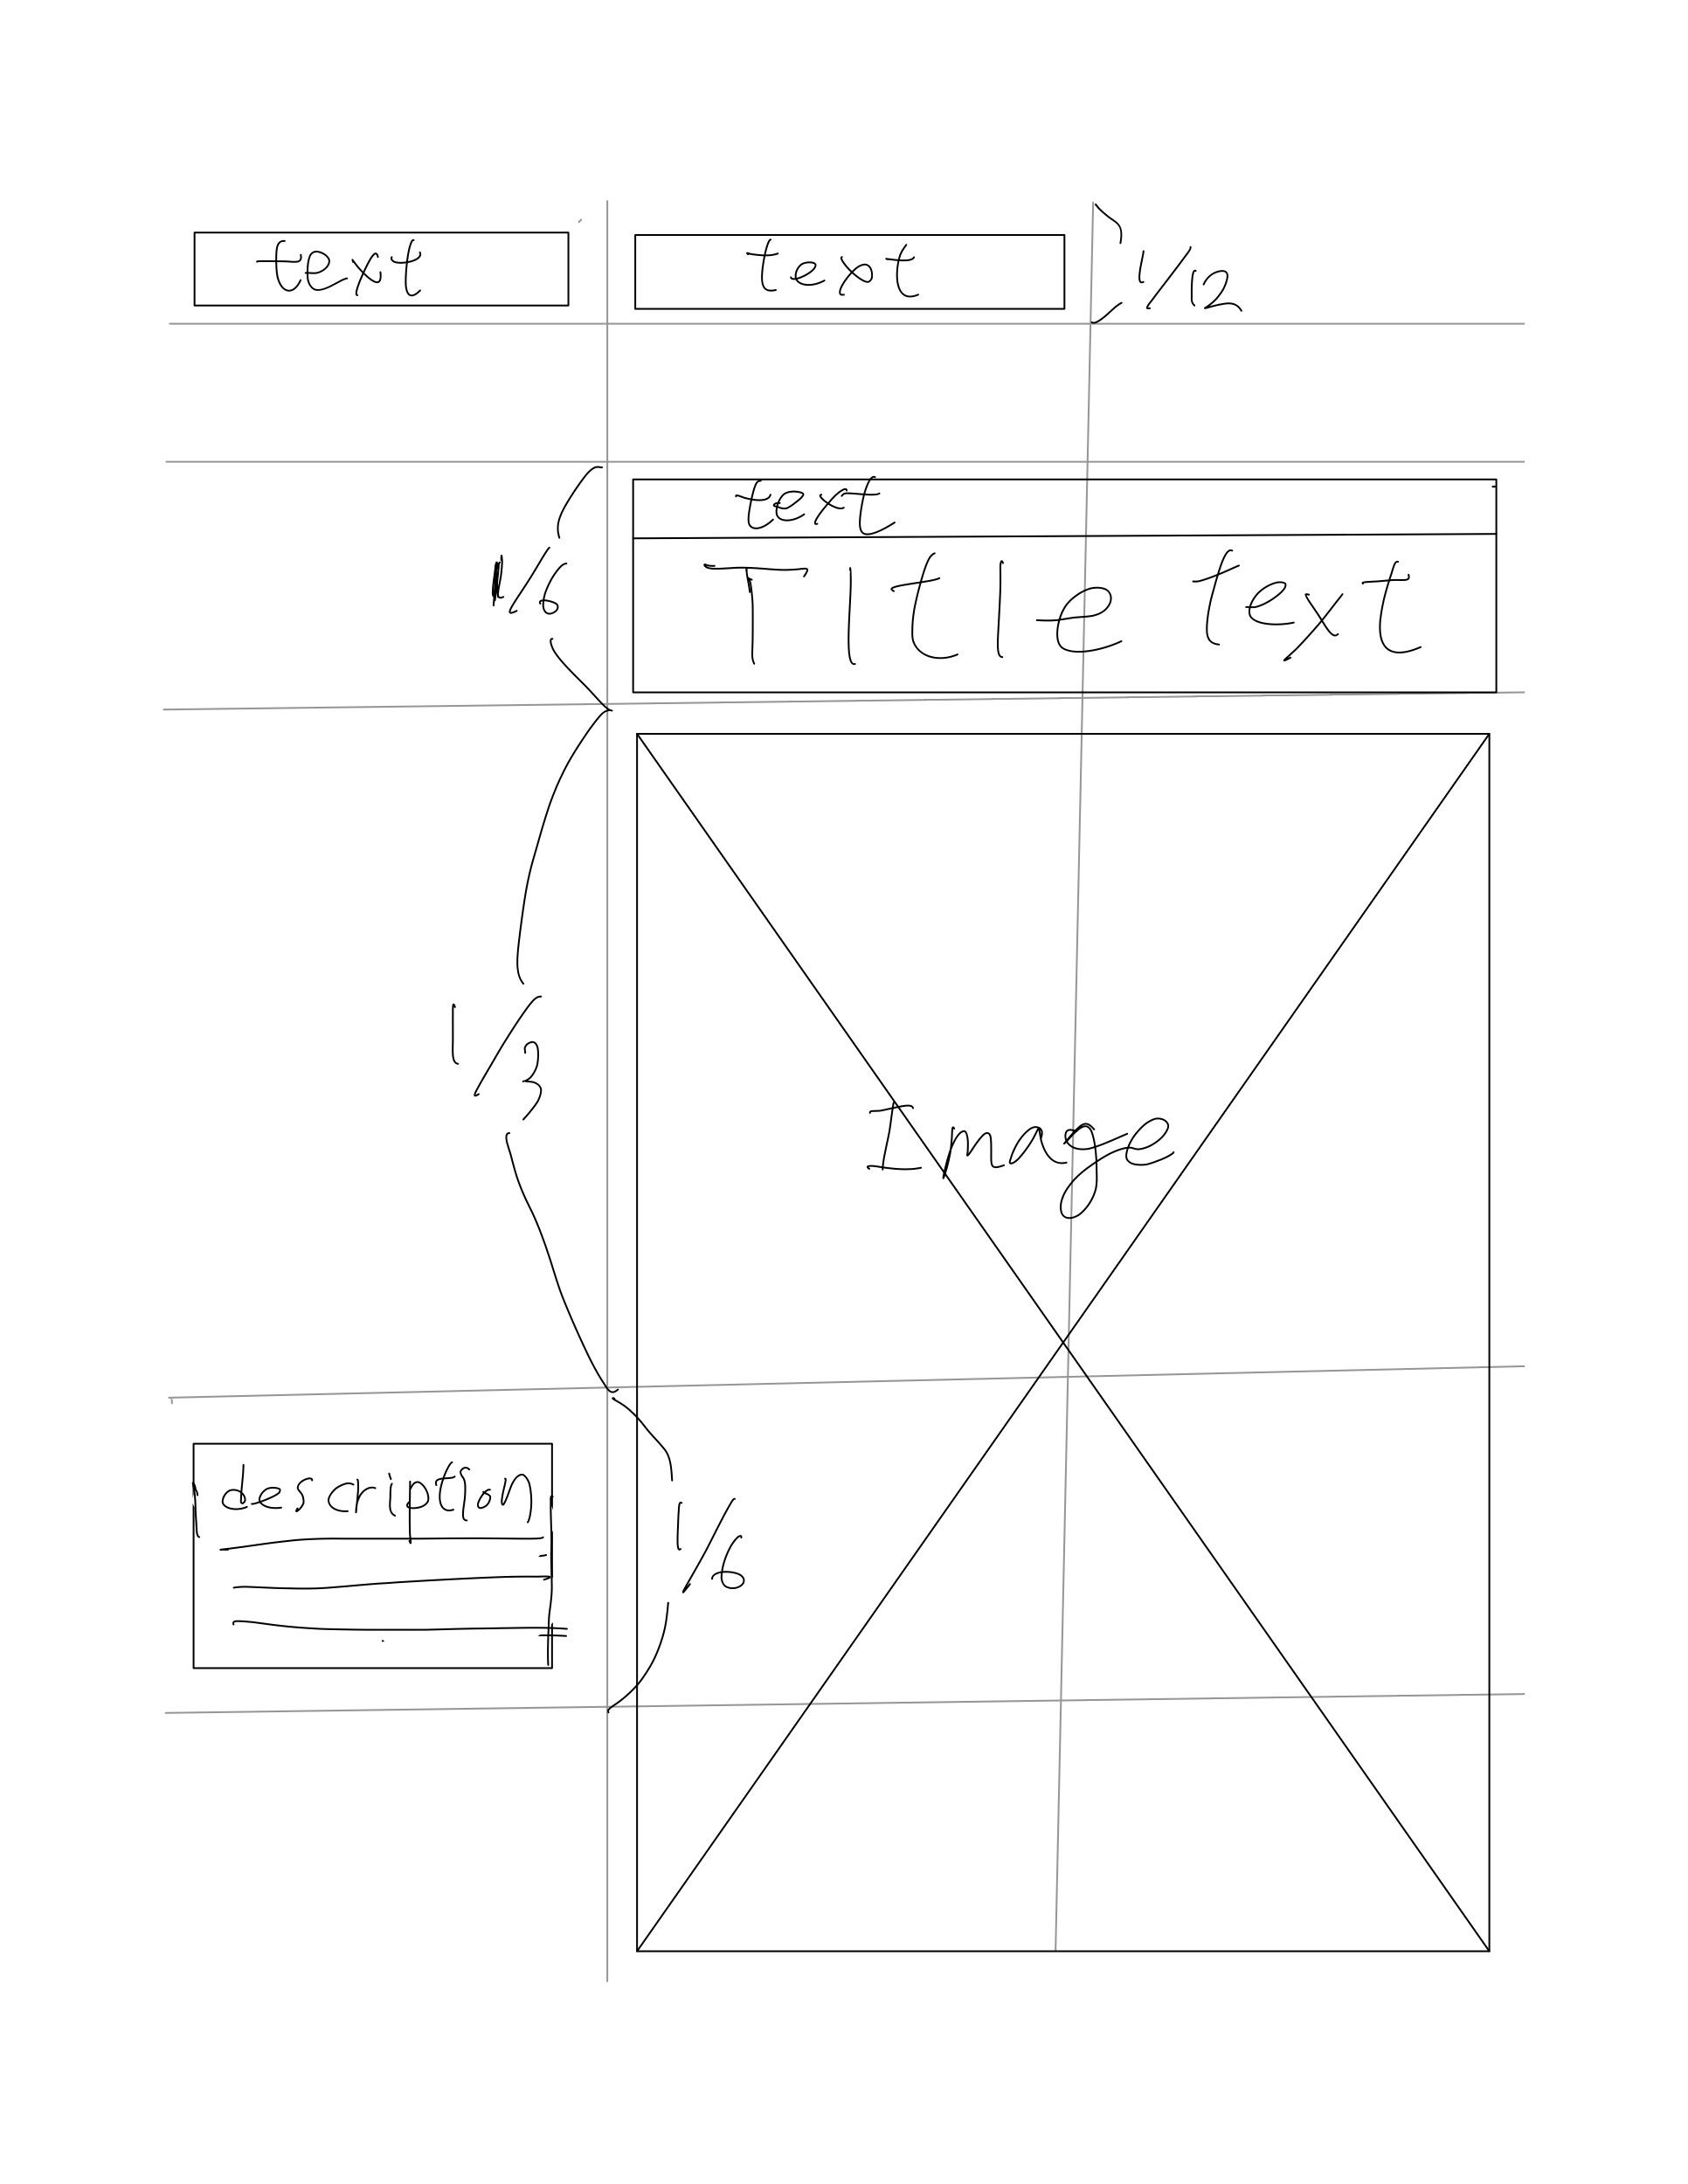 text
text
1/12
text
Title text
1/6
1/3
Image
description
1/6